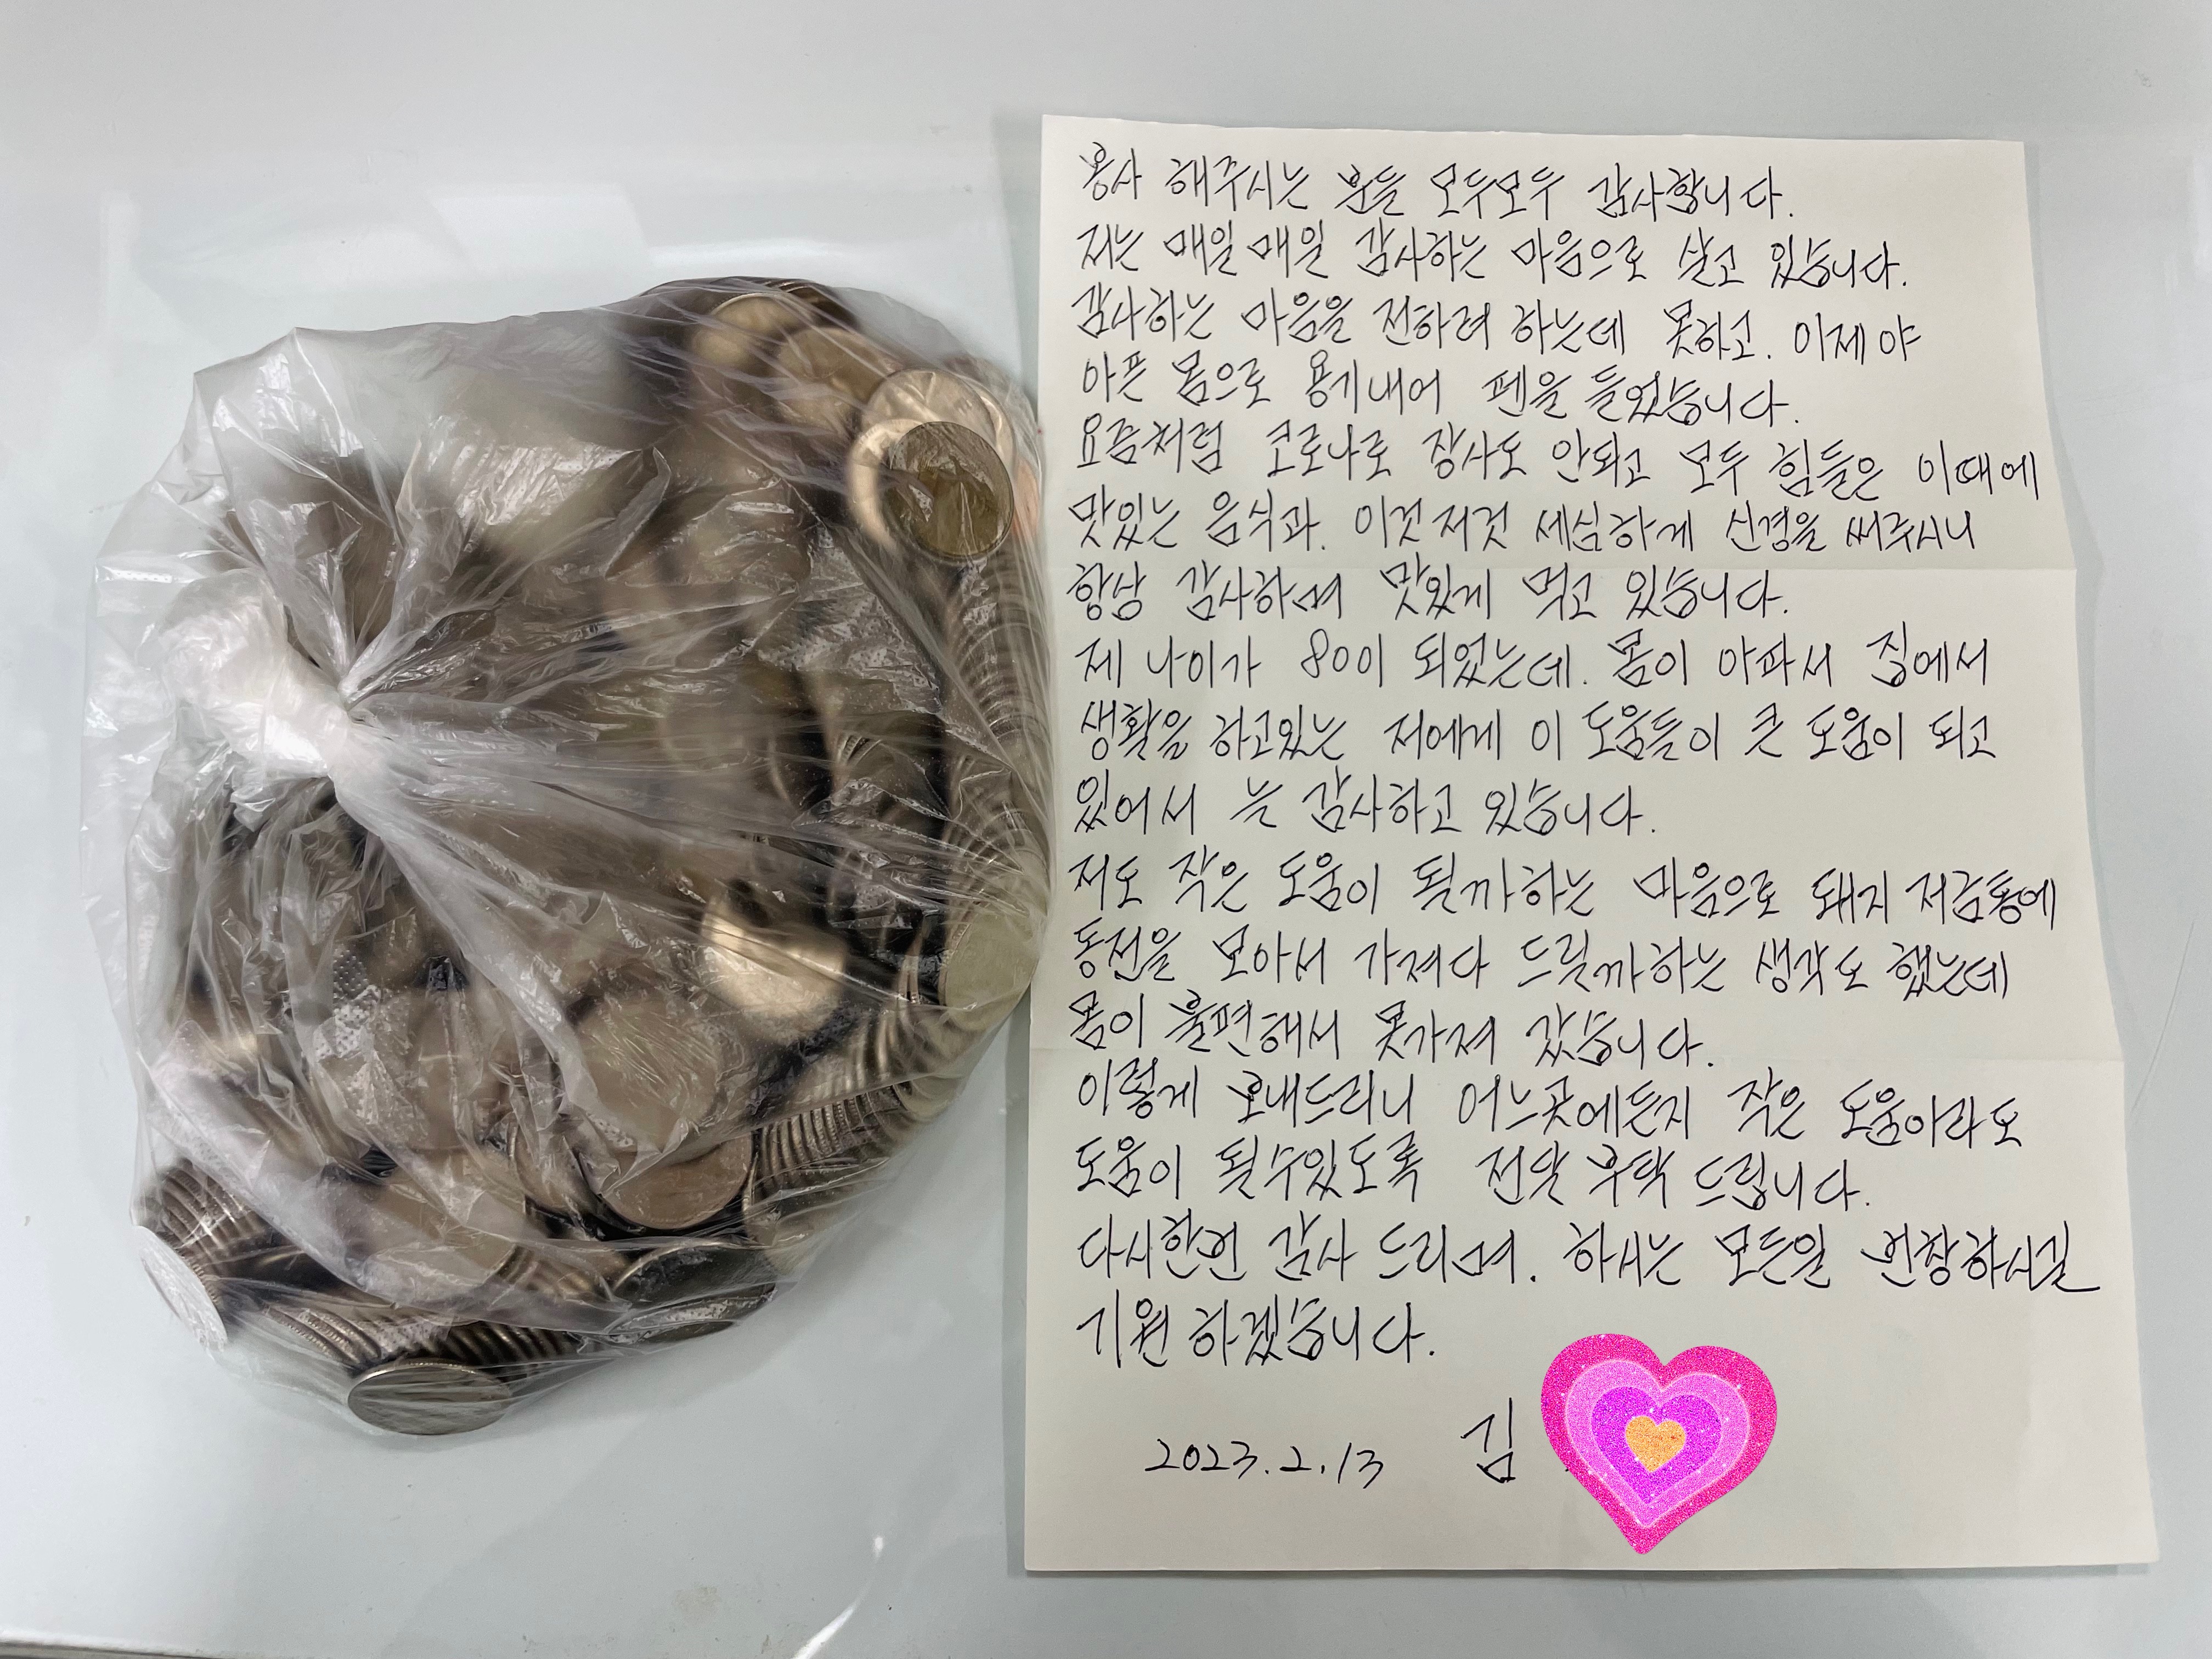 봉사 해주시는 분들 모두모두 감사합니다.
저는 매일매일 감사하는 마음으로 살고 있습니다.
감사하는 마음을 전하려 하는데 못하고. 이제야
아픈 몸으로 용기내어 펜을 들었습니다.
요즘처럼 코로나로 장사도 안되고 모두 힘들은 이때에
맛있는 음식과. 이것저것 세심하게 신경을 써주시니
항상 감사하며 맛있게 먹고 있습니다.
제 나이가 80이 되었는데. 몸이 아파서 집에서
생활을 하고있는 저에게 이 도움들이 큰 도움이 되고
있어서 늘 감사하고 있습니다.
저도 작은 도움이 될까하는 마음으로 돼지 저금통에
동전을 모아서 가져다 드릴까하는 생각도 했는데
몸이 불편해서 못가져 갔습니다.
이렇게 보내드리니 어느곳에든지 작은 도움이라도
도움이 될수있도록 전달 부탁 드립니다.
다시한번 감사 드리며. 하시는 모든일 번창하시길
기원 하겠습니다.
2023.2.13 김